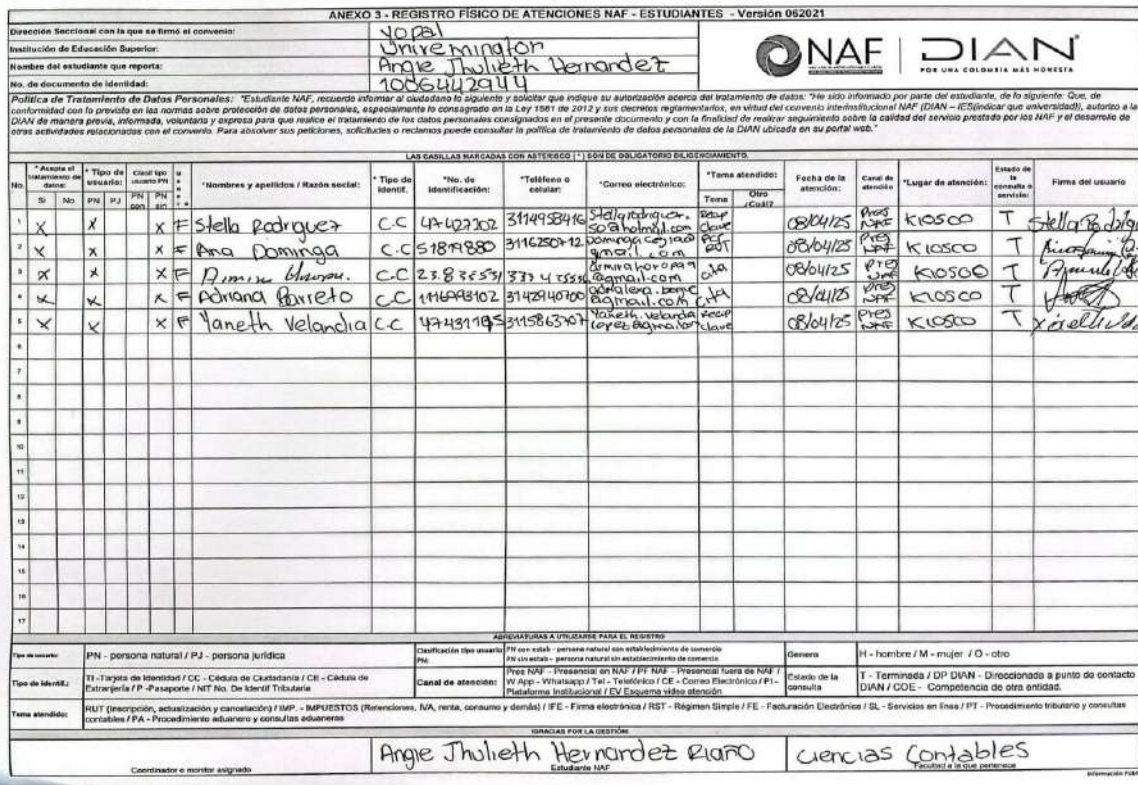 ANEXO 3 - REGISTRO FÍSICO DE ATENCIONES NAF - ESTUDIANTES - Versión 062021
Dirección Seccional con la que se firmó el convenio: Yopal
Institución de Educación Superior: Uniremington
Nombre del estudiante que reporta: Angie Jhulieth Hernandez
No. de documento de identidad: 1006442944
NAF DIAN
POR UNA COLOMBIA MÁS HONESTA
Política de Tratamiento de Datos Personales: "Estudiante NAF, recuerde informar al ciudadano lo siguiente y solicitar que indique su autorización acerca del tratamiento de datos: "He sido informado por parte del estudiante, de lo siguiente: Que, de
conformidad con lo previsto en las normas sobre protección de datos personales, especialmente lo consagrado en la Ley 1581 de 2012 y sus decretos reglamentarios, en virtud del convenio interinstitucional NAF (DIAN – IES(indicar que universidad)), autorizo a la
DIAN de manera previa, informada, voluntaria y expresa para que realice el tratamiento de los datos personales consignados en el presente documento y con la finalidad de realizar seguimiento sobre la calidad del servicio prestado por los NAF y el desarrollo de
otras actividades relacionadas con el convenio. Para absolver sus peticiones, solicitudes o reclamos puede consultar la política de tratamiento de datos personales de la DIAN ubicada en su portal web."
LAS CASILLAS MARCADAS CON ASTERISCO (*) SON DE OBLIGATORIO DILIGENCIAMIENTO.
No. * Acepta el tratamiento de datos: * Tipo de usuario: Clasif tipo usuario PN *Nombres y apellidos / Razón social: * Tipo de identif. *No. de identificación: *Teléfono o celular: *Correo electrónico: *Tema atendido: Fecha de la atención: Canal de atención *Lugar de atención: Estado de la consulta o servicio: Firma del usuario
Si No PN PJ PN con PN sin Tema Otro ¿Cuál?
1 X X X F Stella Rodriguez C.C 47427302 3114958416 clave 08/04/25 Pres NAF KIOSCO T
2 X X X F Ana Dominga C.C 51819880 08/04/25 Pres NAF KIOSCO T
3 X X X F C.C cita 08/04/25 Pres NAF KIOSCO T
4 X X X F Adriana Barreto C.C 1116993102 3142940700 cita 08/04/25 Pres NAF KIOSCO T
5 X X X F Yaneth Velandia C.C 3115863707 clave 08/04/25 Pres NAF KIOSCO T
6
7
8
9
10
11
12
13
14
15
16
17
ABREVIATURAS A UTILIZARSE PARA EL REGISTRO
Tipo de usuario: PN - persona natural / PJ - persona jurídica Clasificación tipo usuario PN: PN con estab - persona natural con establecimiento de comercio
PN sin estab - persona natural sin establecimiento de comercio Genero H - hombre / M - mujer / O - otro
Tipo de identif.: TI -Tarjeta de Identidad / CC - Cédula de Ciudadanía / CE - Cédula de
Extranjería / P -Pasaporte / NIT No. De Identif Tributaria
Canal de atención: Pres NAF - Presencial en NAF / PF NAF - Presencial fuera de NAF /
W App - Whatsapp / Tel - Telefónico / CE - Correo Electrónico / PI -
Plataforma Institucional / EV Esquema video atención
Estado de la consulta T - Terminada / DP DIAN - Direccionado a punto de contacto
DIAN / COE - Competencia de otra entidad.
Tema atendido: RUT (Inscripción, actualización y cancelación) / IMP. - IMPUESTOS (Retenciones, IVA, renta, consumo y demás) / IFE - Firma electrónica / RST - Régimen Simple / FE - Facturación Electrónica / SL - Servicios en línea / PT - Procedimiento tributario y consultas
contables / PA - Procedimiento aduanero y consultas aduaneras
!GRACIAS POR LA GESTIÓN!
Angie Jhulieth Hernandez Riaño Ciencias Contables
Coordinador o monitor asignado Estudiante NAF Facultad a la que pertenece